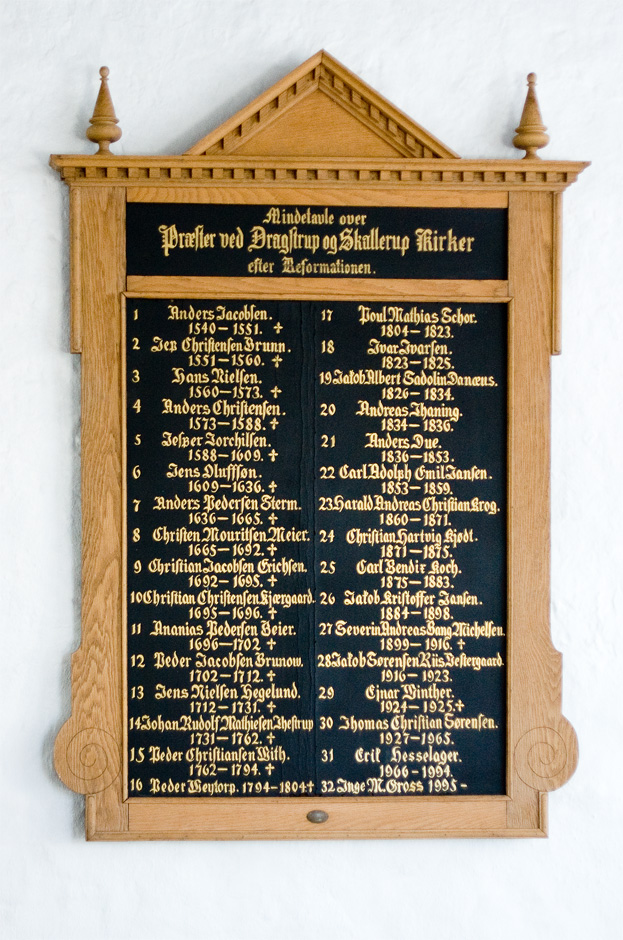 Mindetavle over
Præster ved Dragstrup og Skallerup Kirker
efter Reformationen.
1 Anders Jacobsen.
1540–1551. ✝
2 Jep Christensen Brunn.
1551–1560. ✝
3 Hans Nielsen.
1560–1573. ✝
4 Anders Christensen.
1573–1588. ✝
5 Jesper Torchilsen.
1588–1609. ✝
6 Jens Oluffsøn.
1609–1636. ✝
7 Anders Pedersen Term.
1636–1665. ✝
8 Christen Mouritsen Meier.
1665–1692. ✝
9 Christian Jacobsen Erichsen.
1692–1695. ✝
10 Christian Christensen Kjærgaard.
1695–1696. ✝
11 Ananias Pedersen Beier.
1696–1702 ✝
12 Peder Jacobsen Brunow.
1702–1712. ✝
13 Jens Nielsen Hegelund.
1712–1731. ✝
14 Johan Rudolf Mathiesen Thestrup
1731–1762. ✝
15 Peder Christiansen With.
1762–1794. ✝
16 Peder Weytorp. 1794–1804 ✝
17 Poul Mathias Schor.
1804–1823.
18 Ivar Ivarsen.
1823–1825.
19 Jakob Albert Tadolin Danæus.
1826–1834.
20 Andreas Thaning.
1834–1836.
21 Anders Due.
1836–1853.
22 Carl Adolph Emil Jansen.
1853–1859.
23 Harald Andreas Christian Krog.
1860–1871.
24 Christian Hartvig Kjødt.
1871–1875.
25 Carl Bendix Koch.
1875–1883.
26 Jakob Kristoffer Jansen.
1884–1898.
27 Severin Andreas Bang Michelsen.
1899–1916. ✝
28 Jakob Sørensen Riis Vestergaard.
1916–1923.
29 Ejnar Winther.
1924–1925. ✝
30 Thomas Christian Sørensen.
1927–1965.
31 Erik Hesselager.
1966-1994.
32 Inge M. Gross 1995 -